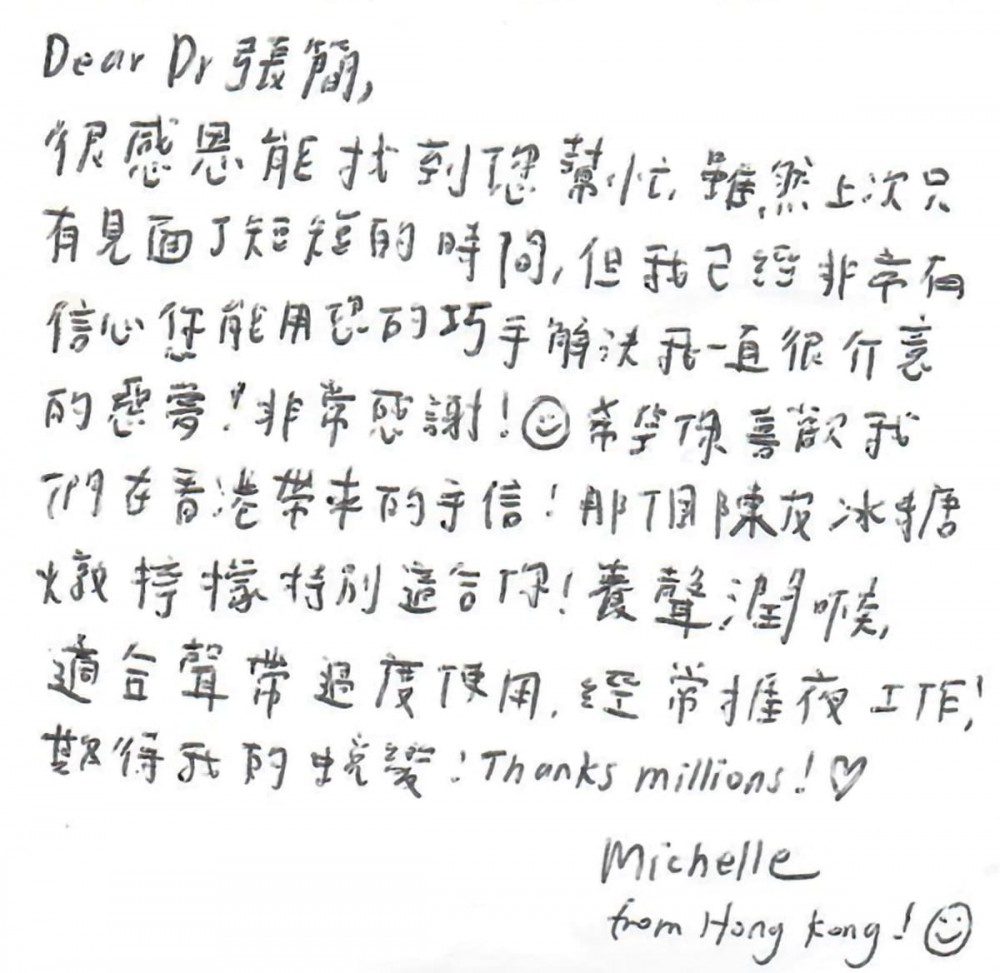 Dear Dr 張簡,
很感恩能找到您幫忙, 雖然上次只
有見面了短短的時間, 但我已經非常有
信心您能用您的巧手解決我一直很介意
的惡夢! 非常感謝! ☺ 希望你喜歡我
們在香港帶來的手信! 那個陳皮冰糖
燉檸檬特別適合你! 養聲潤喉,
適合聲帶過度使用, 經常捱夜工作!
期待我的蛻變! Thanks millions! ♡
Michelle
from Hong Kong! ☺